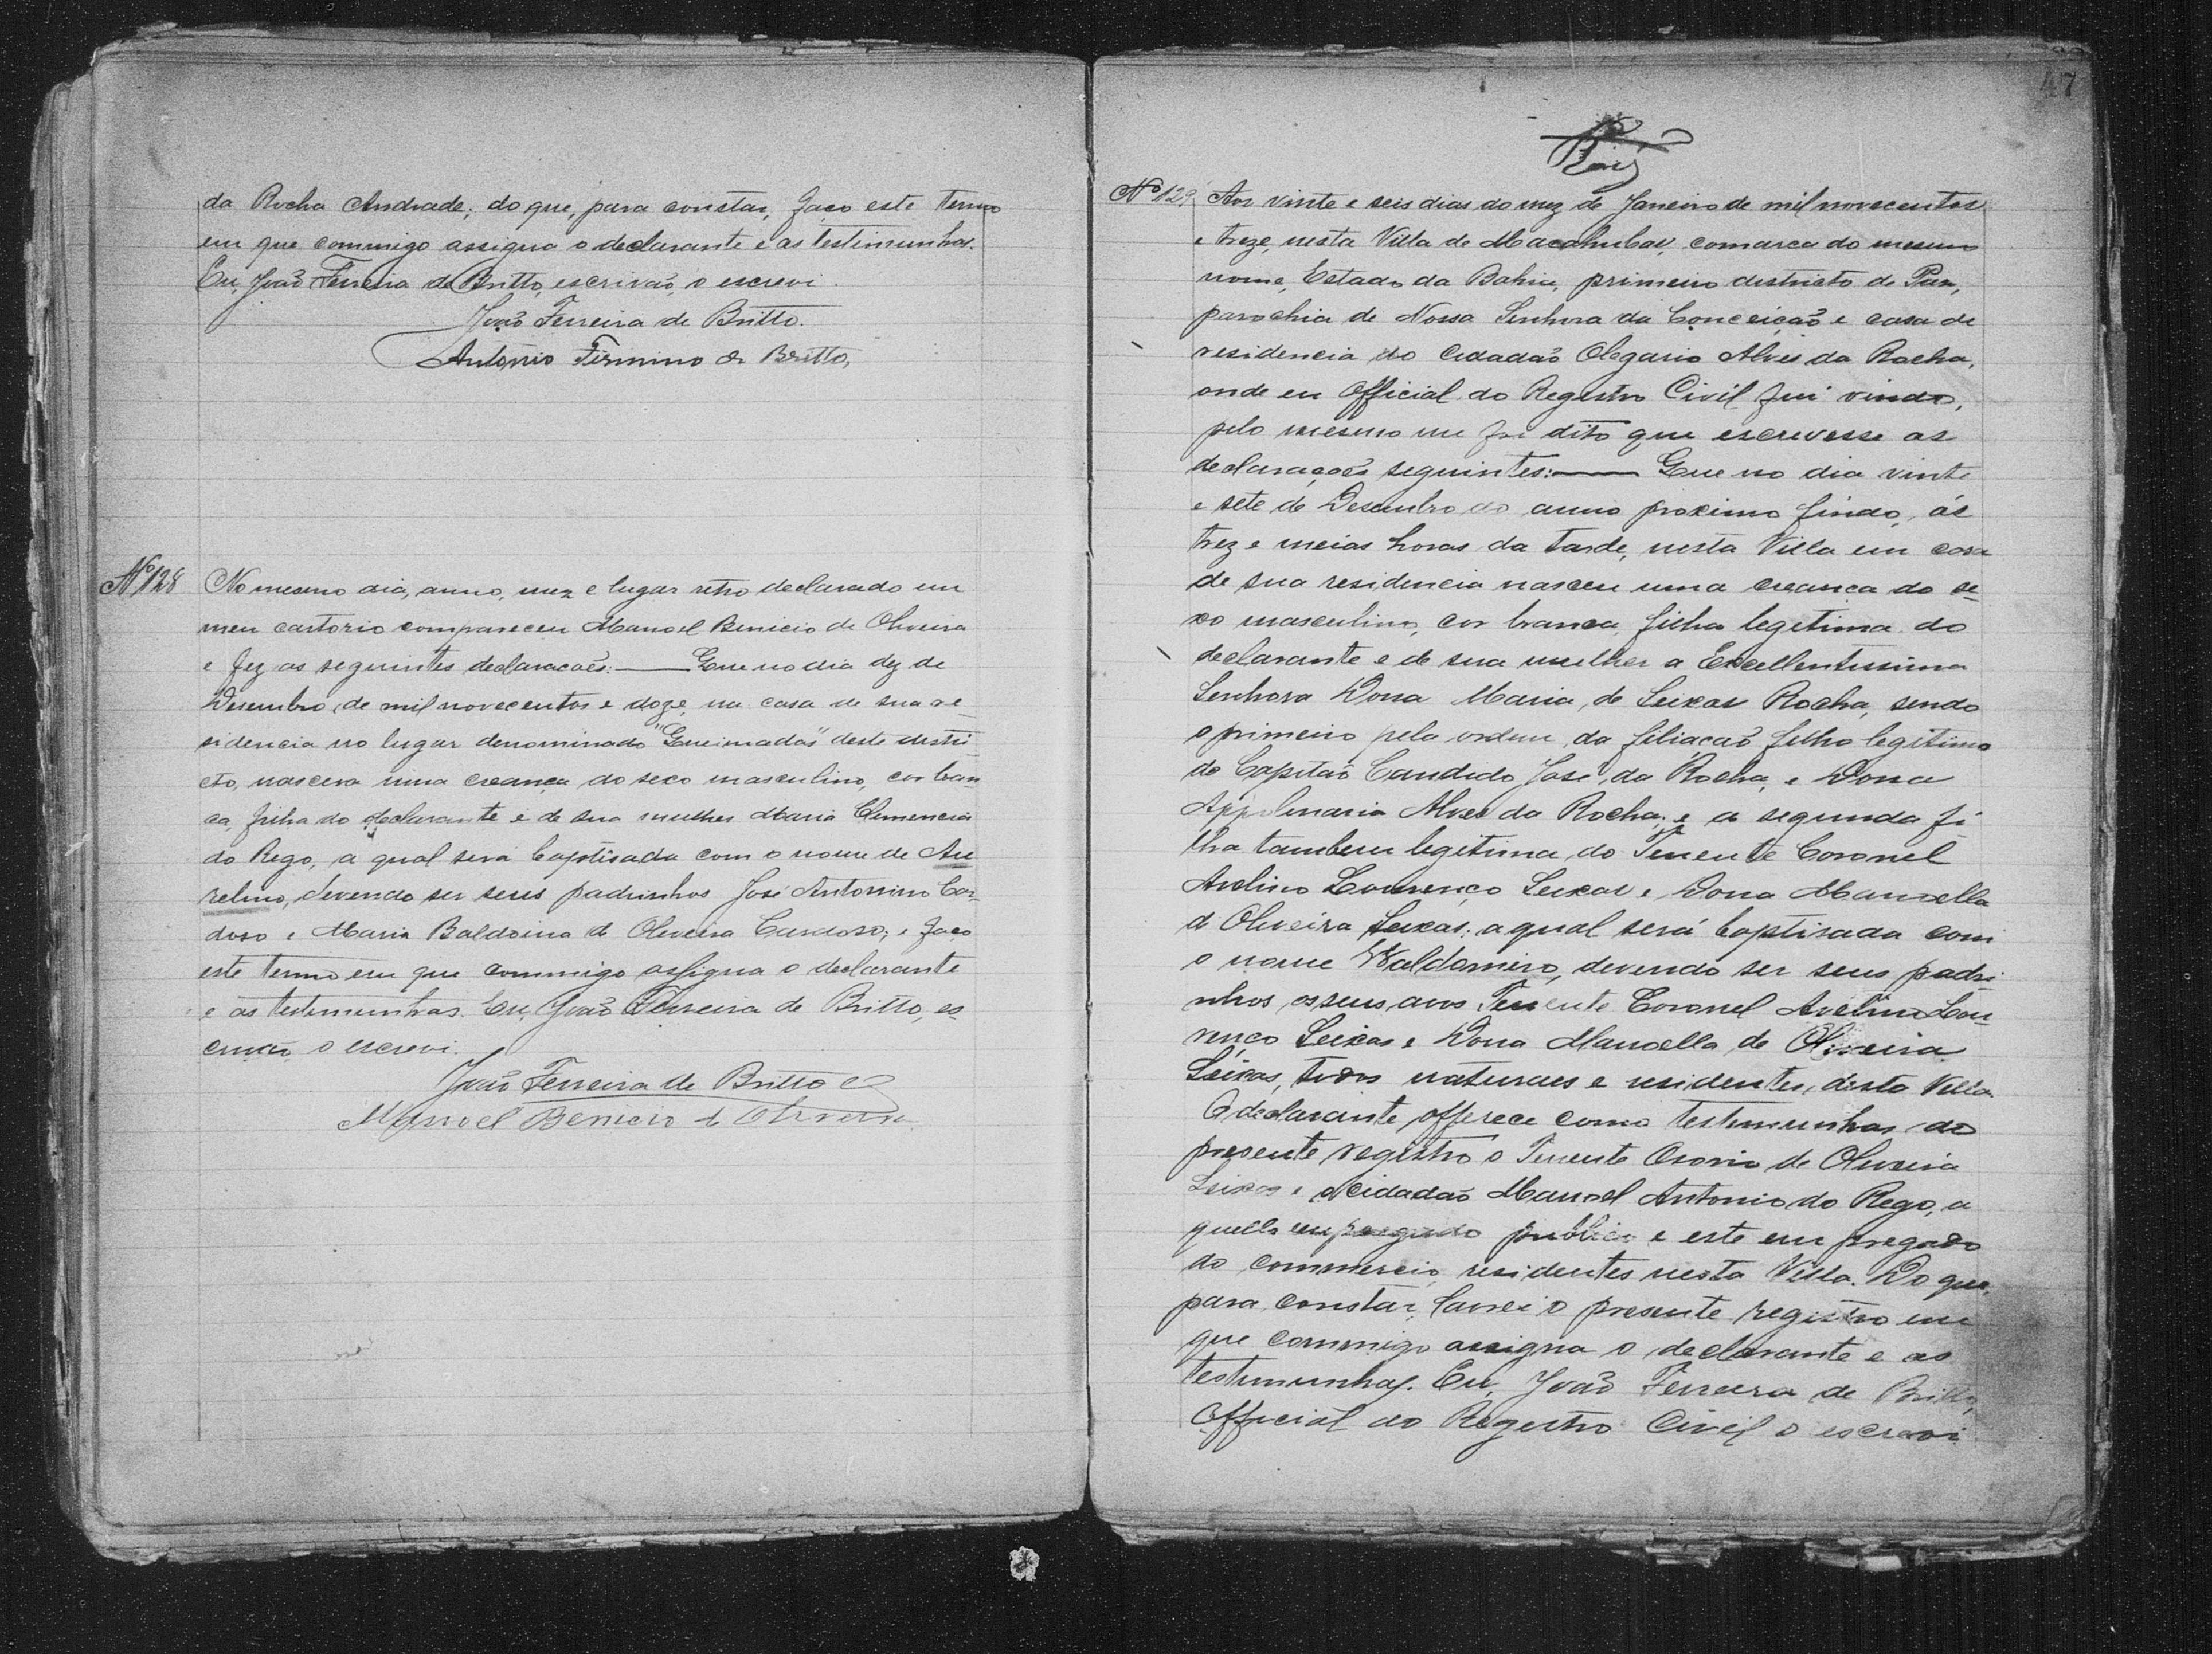 da Rocha Andrade; do que, para constar, faço este termo
em que commigo assigna o declarante e as testimunhas.
Eu, João Ferreira de Britto, escrivaõ, o escrevi.
João Ferreira de Britto.
Antonio Firmino de Britto,
Nº 128 No mesmo dia, anno, mez e lugar retro declarado em
meu cartorio compareceu Manoel Benicio de Oliveira
e fez as seguintes declaracoēs: — Que no dia dez de
Desembro de mil novecentos e doze, na casa de sua re-
sidencia no lugar denominado "Queimadas" deste distri
cto, nascera uma creança do sexo masculino, cor bran-
ca, filha do declarante e de sua mulher Maria Clemencia
do Rego, a qual será baptisada com o nome de Au
relino, devendo ser seus padrinhos José Antonino Car-
doso e Maria Baldoina de Oliveira Cardoso; e faço
este termo em que commigo assigna o declarante
e as testimunhas. Eu, João Ferreira de Britto, es
crivão o escrevi.
João Ferreira de Britto
Manoel Benicio de Oliveira
47
Nº 129 Aos vinte e seis dias do mez de Janeiro de mil novecentos
e treze, nesta Villa de Macahubas, comarca do mesmo
nome, Estado da Bahia, primeiro districto de Paz,
parochia de Nossa Senhora da Conceição e casa de
residencia do Cidadaõ Olegario Alves da Rocha,
onde eu Official do Registro Civil fui vindo,
pelo mesmo me foi dito que escrevesse as
declaraçoēs seguintes: — Que no dia vinte
e sete de Desembro do anno proximo findo, ás
trez e meias horas da tarde, nesta Villa em casa
de sua residencia nasceu uma creança do se-
xo masculino, cor branca, filha legitima do
declarante e de sua mulher a Excellentissima
Senhora Dona Maria de Seixas Rocha, sendo
o primeiro pela ordem da filiaçaõ filho legitimo
do Capitaõ Candido José da Rocha, e Dona
Appolinaria Alves da Rocha; e a segunda fi
lha tambem legitima do Tenente Coronel
Avelino Lourenço Seixas e Dona Manoella
de Oliveira Seixas; a qual será baptisada com
o nome Waldomiro, devendo ser seus padri
nhos, os seus avos Tenente Coronel Avelino Lou-
renço Seixas e Dona Manoella de Oliveira
Seixas, todos naturaes e residentes, desta Villa.
O declarante offerece como testimunhas do
presente registro o Tenente Osorio de Oliveira
Seixas e o Cidadaõ Manoel Antonio do Rego, a
quelle empregado publico e este empregado
do commercio, residentes nesta Villa. Do que,
para constar, lavrei o presente registro em
que commigo assigna o declarante e as
testimunhas. Eu, João Ferreira de Britto,
Official do Registro Civil o escrevi